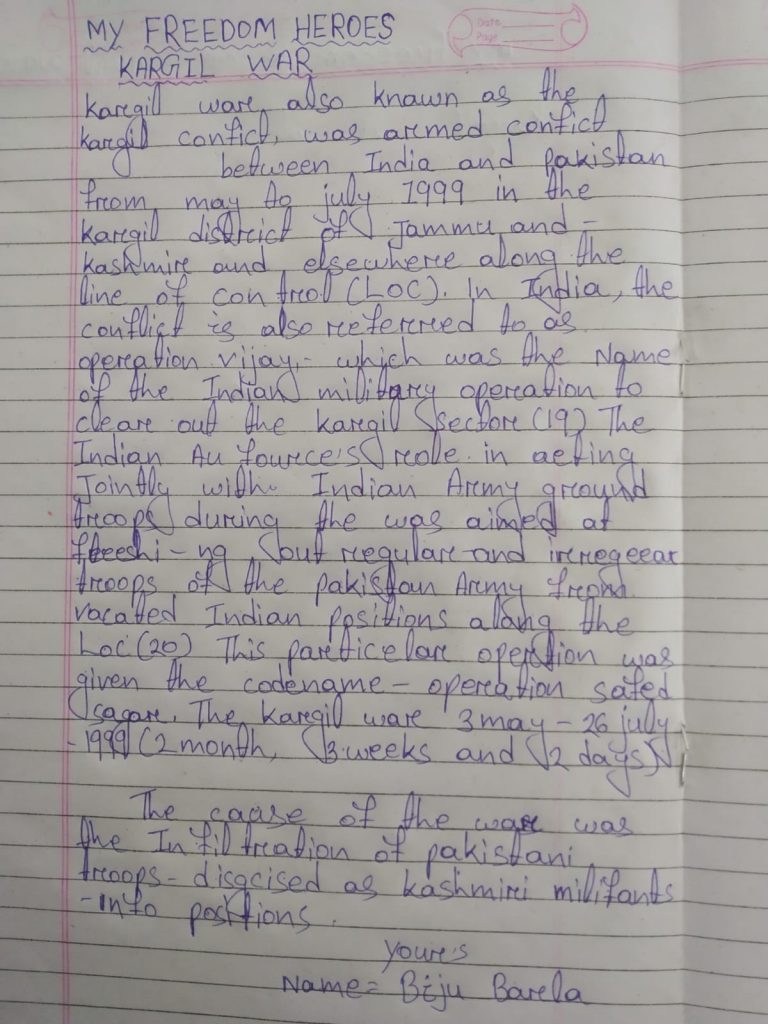 Date
Page
MY FREEDOM HEROES
KARGIL WAR
Karegil ware, also known as the
kargil confict, was aremed confict
between India and pakistan
from may to july 1999 in the
karegil distrcict of Jammu and -
kashmire and elsewhere along the
line of con trol (LOC). In India, the
conflict is also referred to as
operation vijay, - which was the Name
of the Indian military opercation to
cleare out the kargil sectore (19) The
Indian Au fource's role in aeting
Jointly with Indian Army ground
troops during the was aimed at
- ng out regulare and irregeear
troops of the pakistan Army from
vacated Indian positions along the
Loc (20) This particelare operation was
given the codename - operation safed
sagare. The Karegil ware 3 may - 26 july
- 1999 (2 month, 3 weeks and 2 days)
The caase of the ware was
the In fil treation of pakistani
troops - disgcised as kashmiri militants
- into positions.
Youre's
Name = Biju Barela